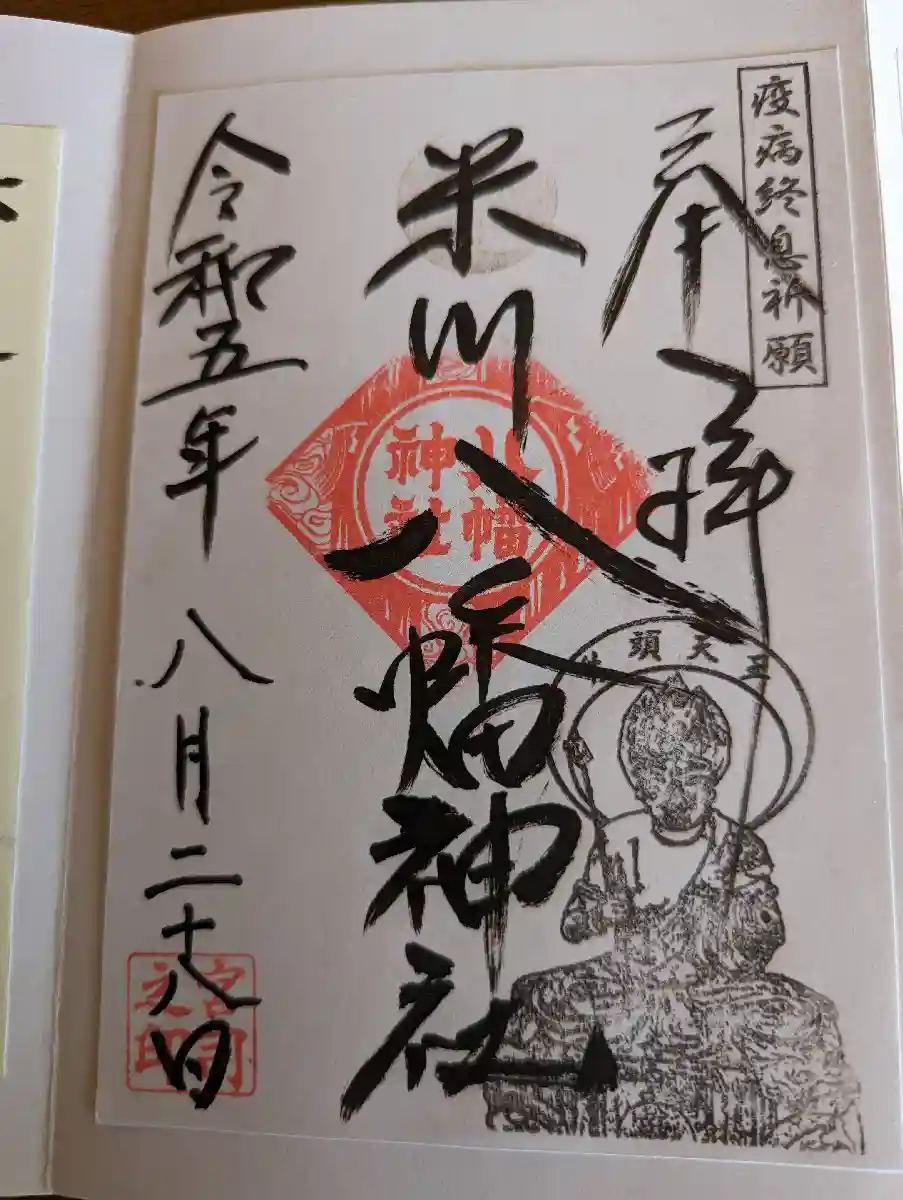 疫病終息祈願
奉拝
米川八幡神社
八幡
神社
天頭
令和五年八月二十八日
宮司
之印